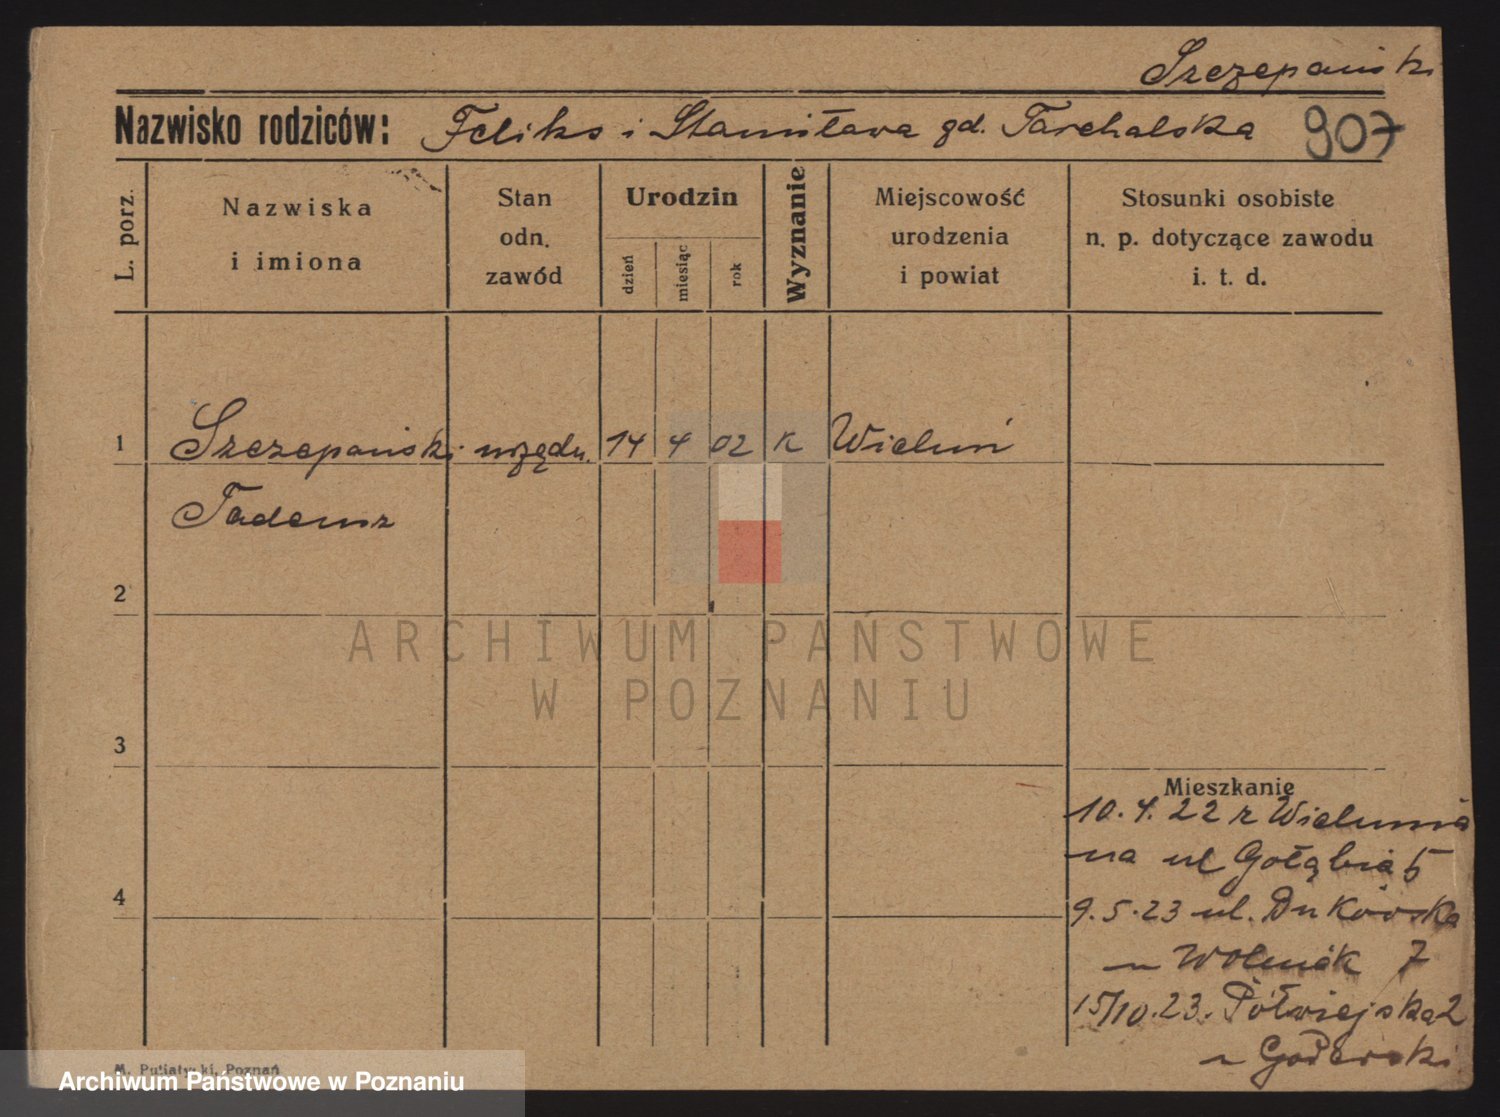 Szczepański
Nazwisko rodziców: Feliks i Stanisława zd. Tarchalska 907
L. porz.
Nazwiska
i imiona
Stan
odn.
zawód
Urodzin
dzień
miesiąc
rok
Wyznanie
Miejscowość
urodzenia
i powiat
Stosunki osobiste
n. p. dotyczące zawodu
i. t. d.
1 Szczepański urzędn. 14 4 02 K Wieluń
Tadeusz
2
ARCHIWUM PAŃSTWOWE
W POZNANIU
3
Mieszkanie
10.4.22 z Wielunia
na ul Gołębia 5
4
9.5.23 ul.
Wolniak 7
15/10.23. Półwiejska 2
M. Putiatycki, Poznań
Archiwum Państwowe w Poznaniu